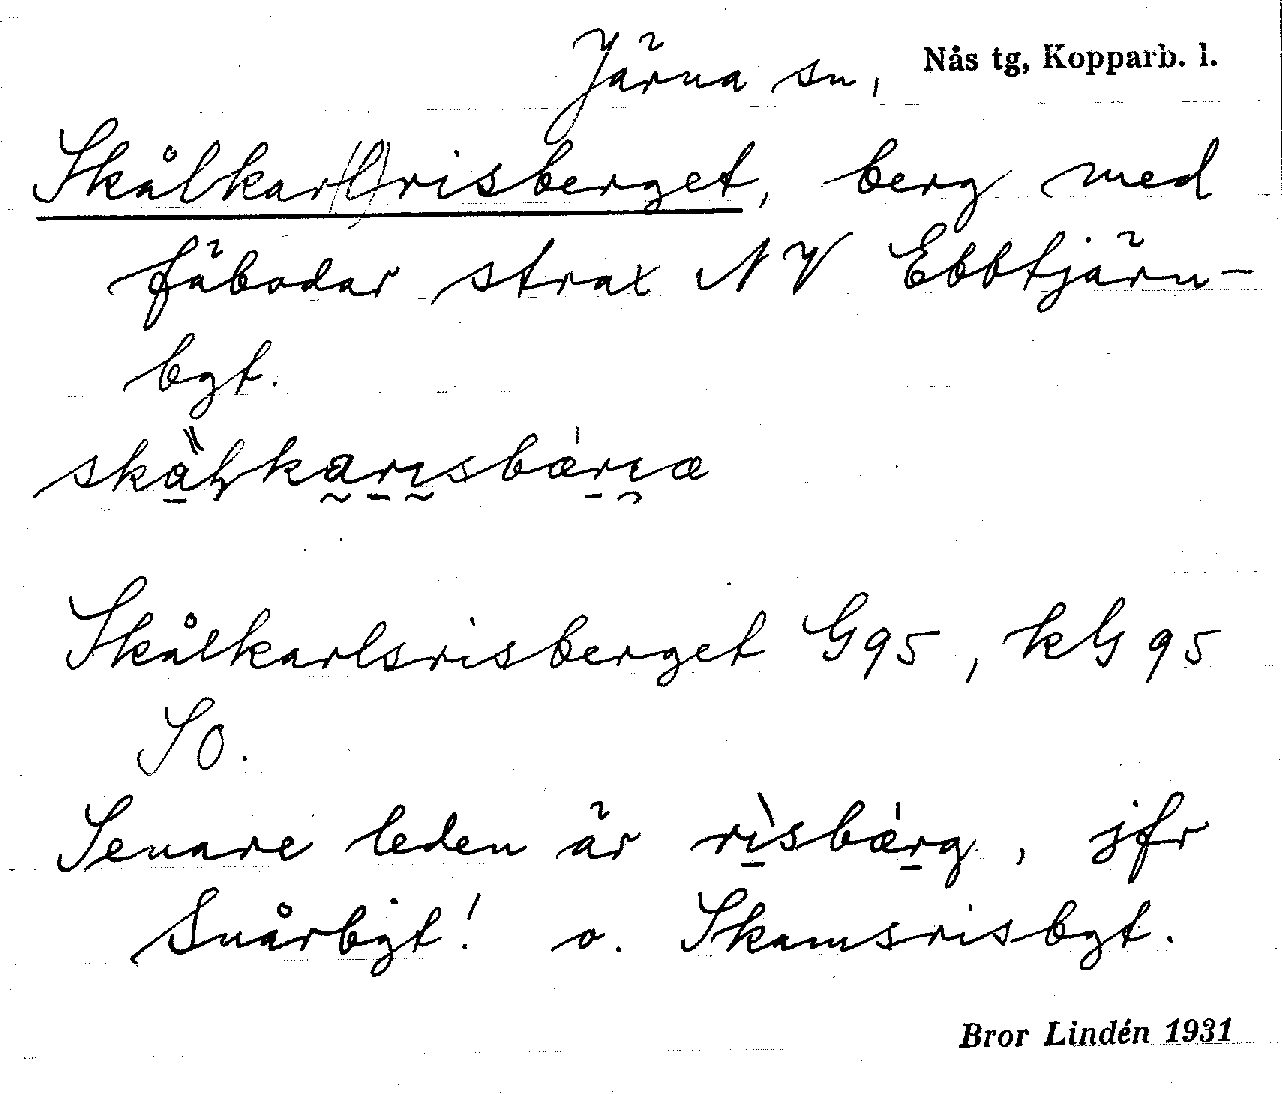 Järna sn, Nås tg, Kopparb. l.
Skålkar(l)risberget, berg med
fäbodar strax NV Ebbtjärn-
bgt.
Skålkarlsrisberget G95, kG95
SO.
Senare leden är rìsbærg, jfr
Snårbgt! o. Skamsrisbgt.
Bror Lindén 1931